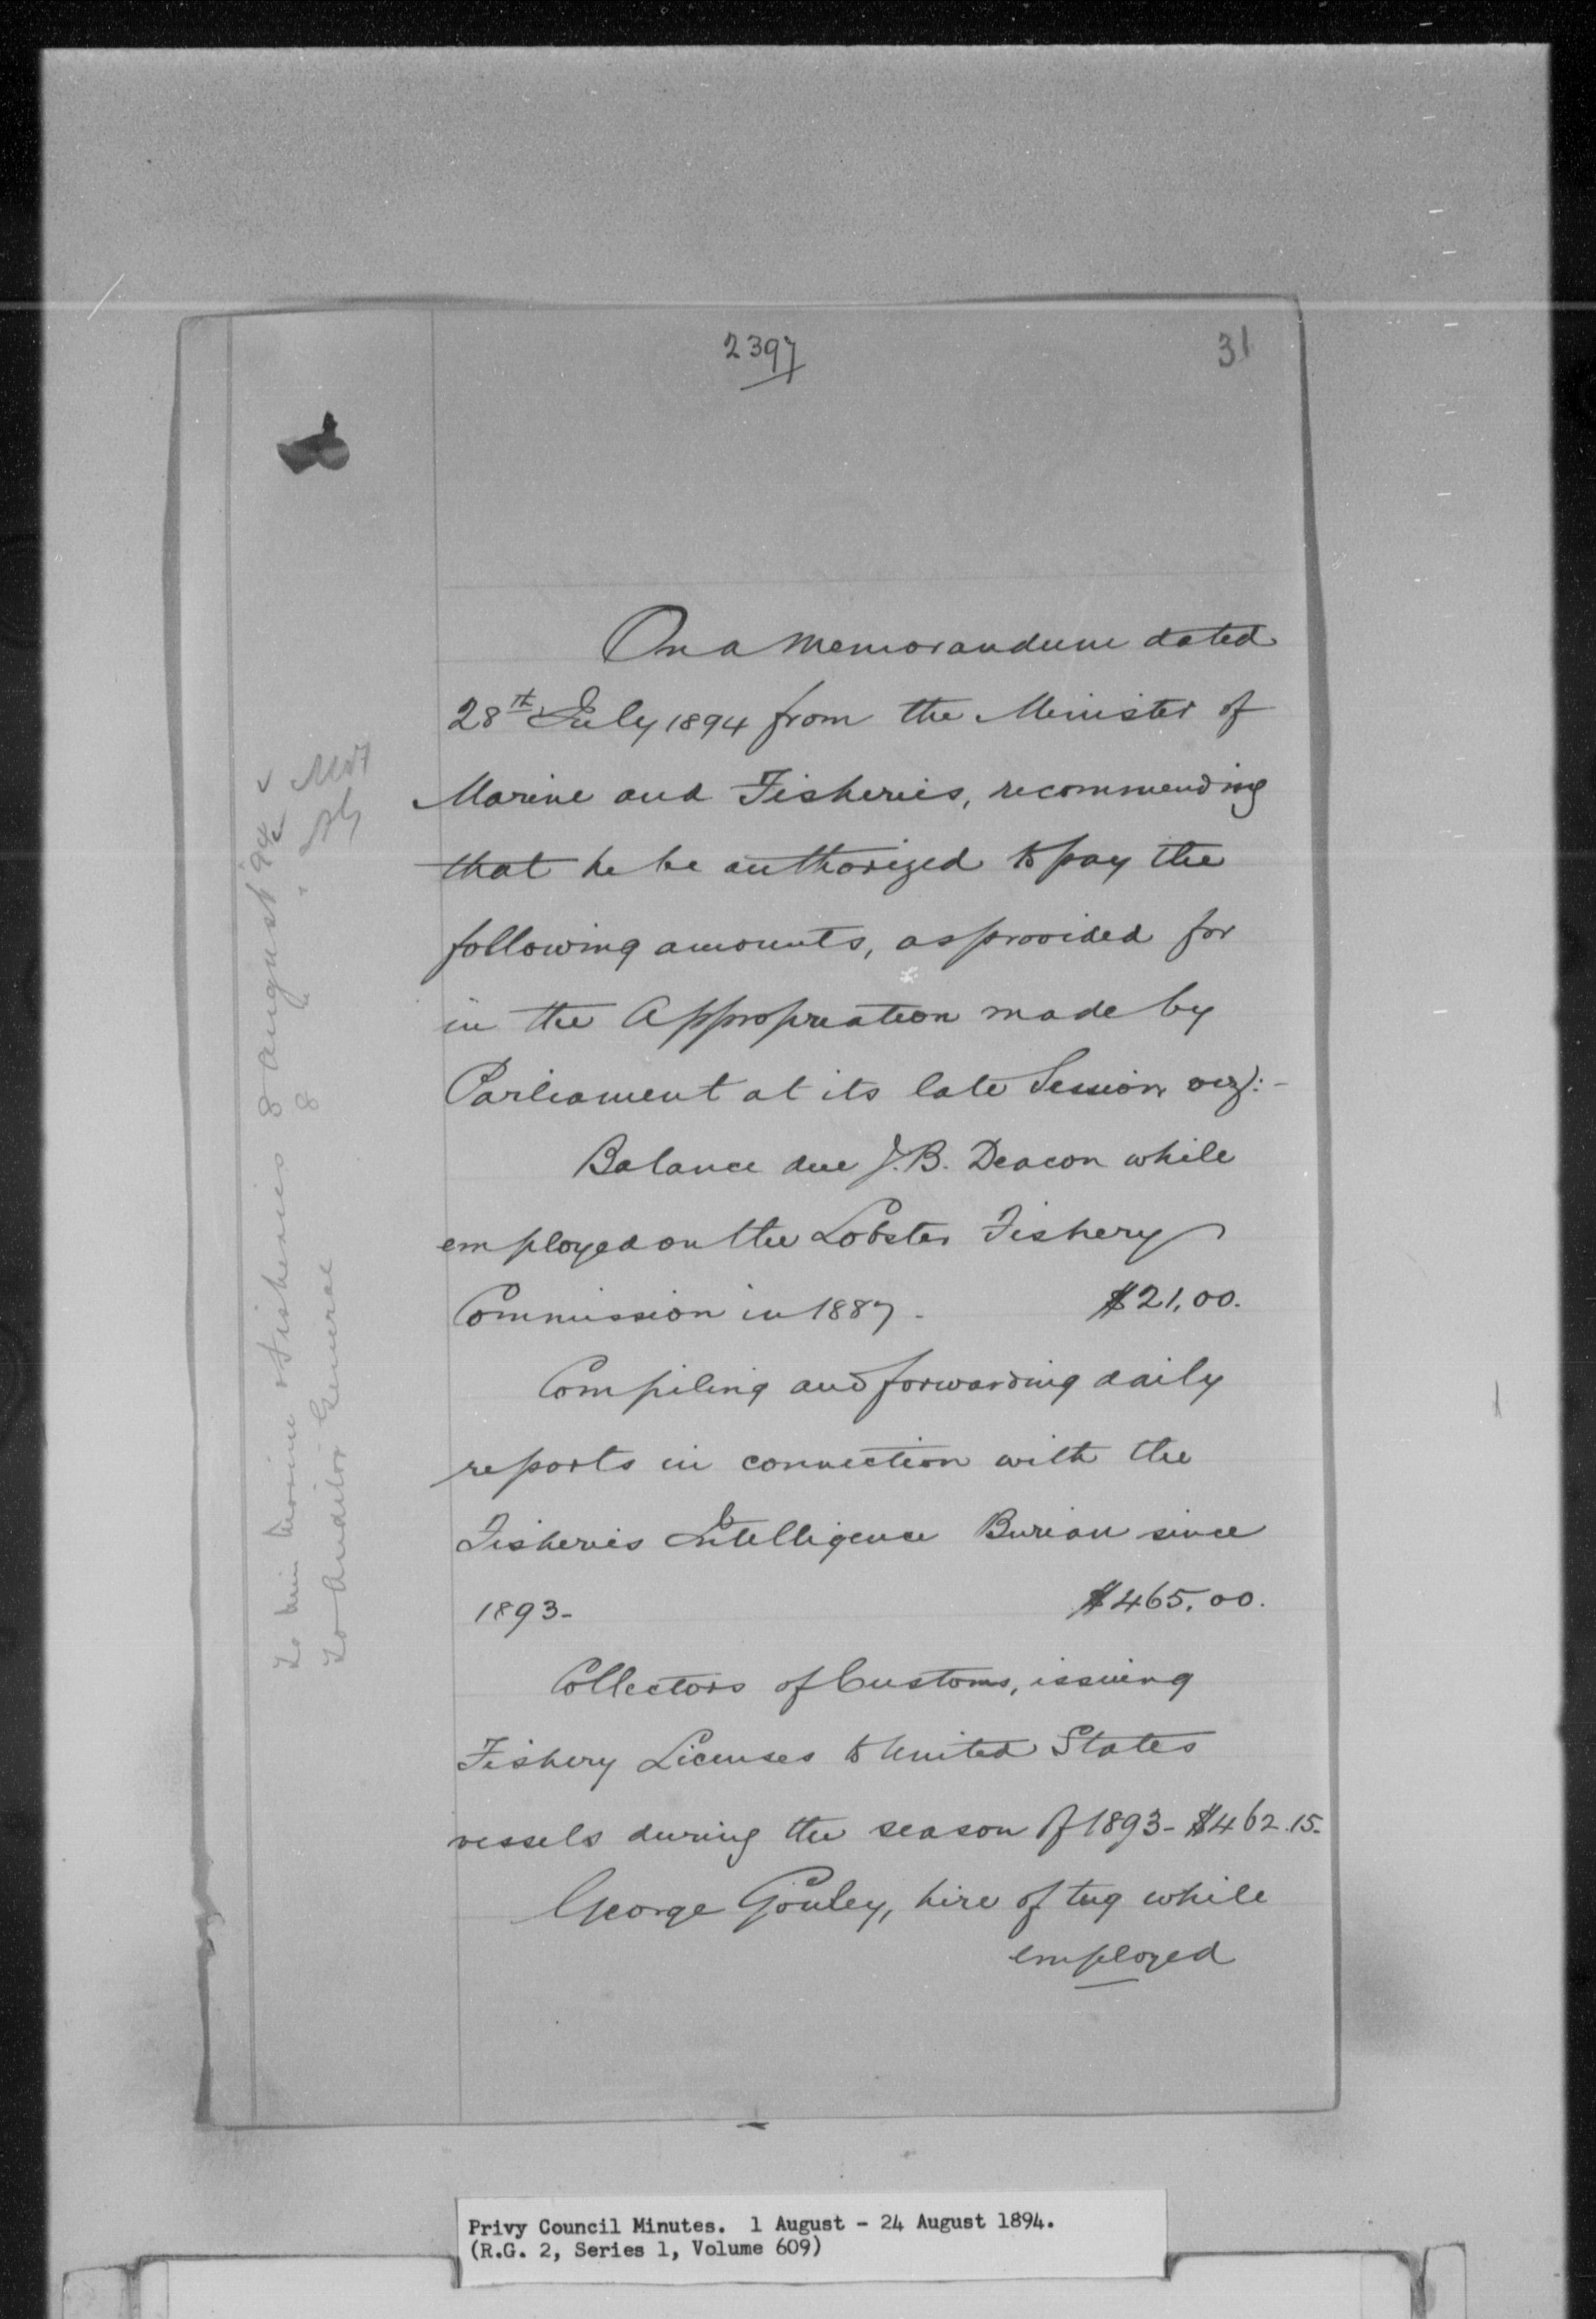 2397
31
On a Memorandum dated
28th July 1894 from the Minister of
Marine and Fisheries, recommending
that he be authorized to pay the
following amounts, as provided for
in the Appropriation made by
Parliament at its late Session viz:-
Balance due J.B. Deacon while
employed on the Lobster Fishery
Commission in 1887 - $21.00.
Compiling and forwarding daily
reports in connection with the
Fisheries Intelligence Bureau since
1893- $465.00.
Collectors of Customs, issuing
Fishery Licenses to United States
vessels during the season of 1893- $462.15-
George Gouley, hire of tug while
employed
To Min Marine & Fisheries 8 August '94
To Auditor General 8 " "
Privy Council Minutes. 1 August - 24 August 1894.
(R.G. 2, Series 1, Volume 609)